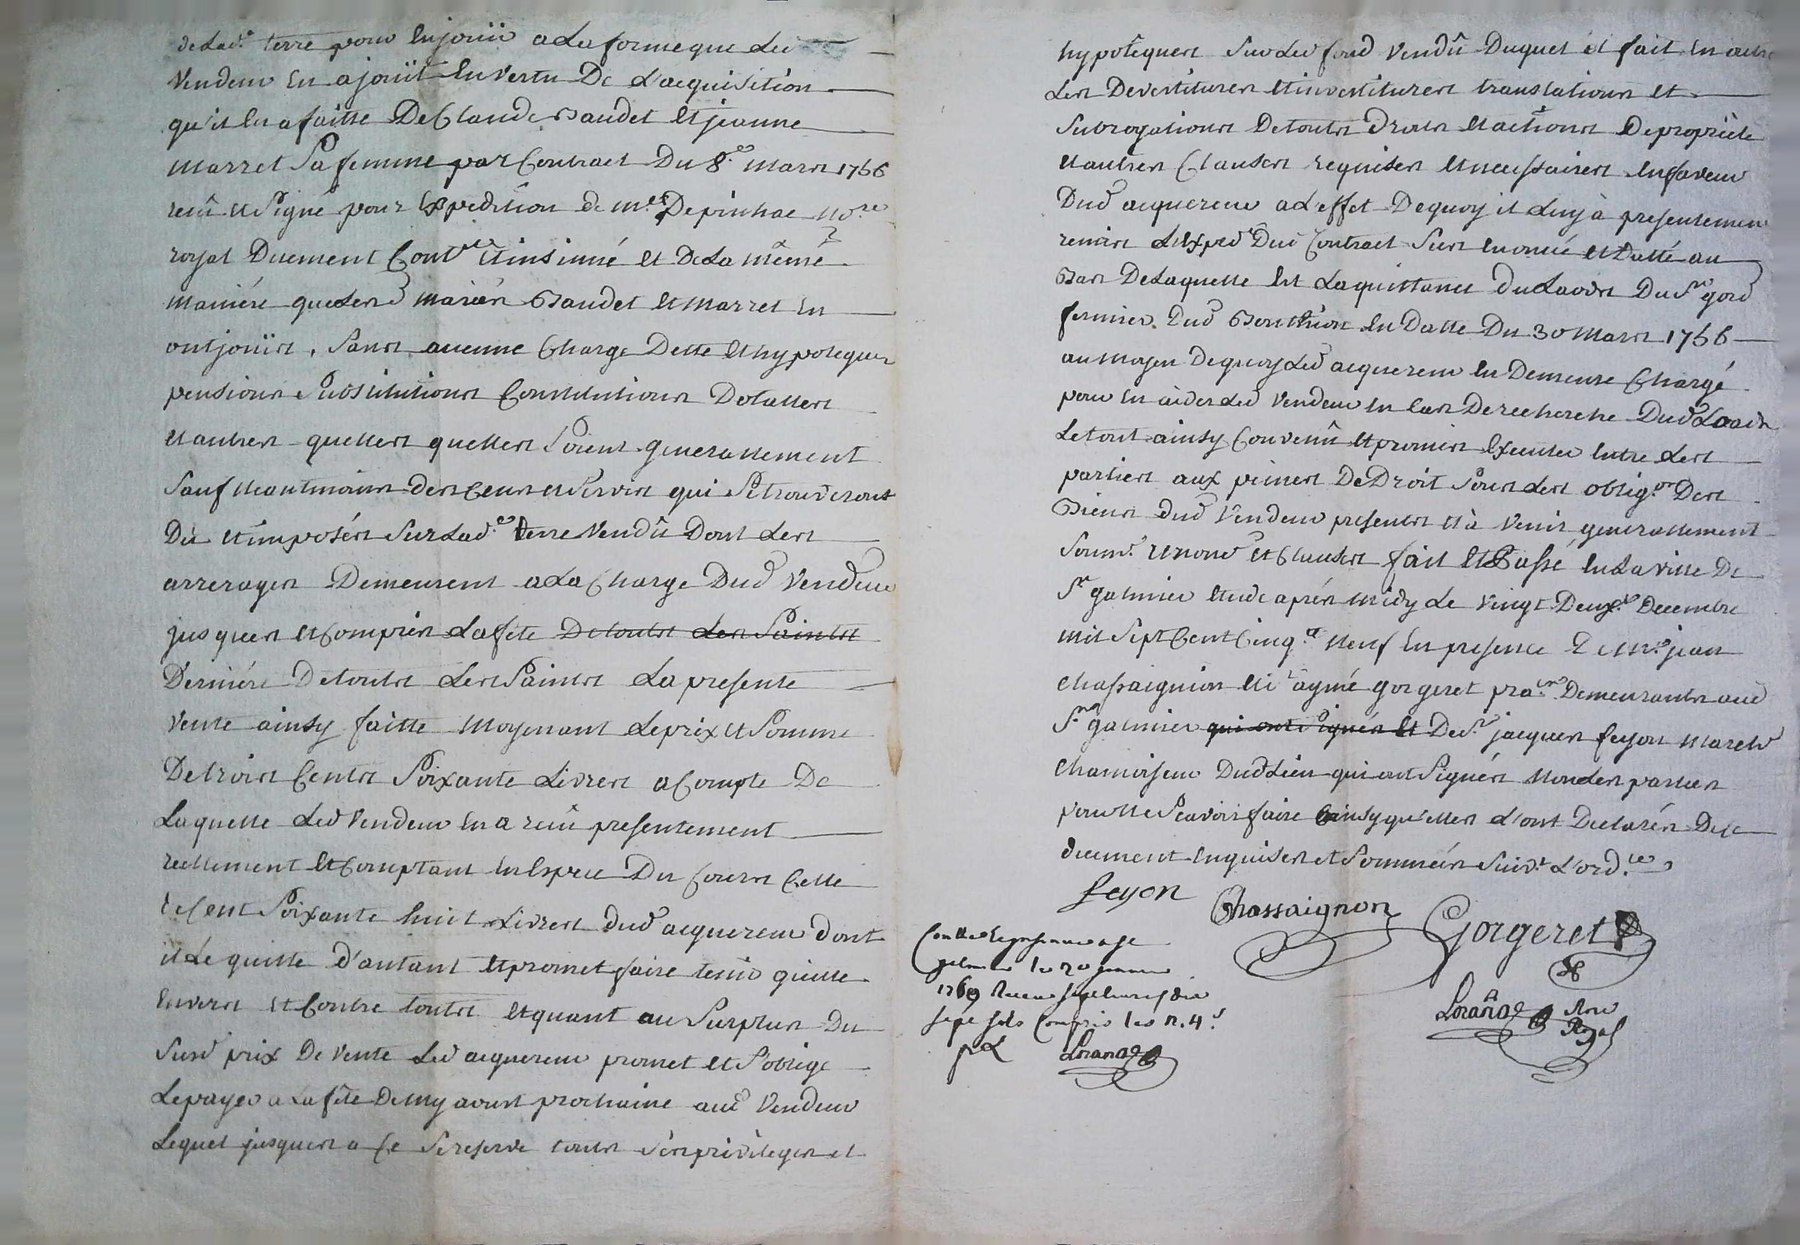 de lad.e terre pour en jouir a la forme que led
vendeur en a jouit en vertu de l'acquisition
qu'il en a faitte de Claude Baudet et jeanne
marret sa femme par contract du 8.e mars 1756
reçû et signé pour expedition de m.e Depinhac no.re
royal duement cont.lé et insinué et de la même
maniére que lesd mariés Baudet et marret en
ont jouis, sans aucune charge dette et hypoteques
pensions substitutions constitutions dotalles
et autres quelles quelles soient generallement
sauf neantmoins des cens et servis qui se trouveront
dû et imposés sur lad.e terre vendû dont les
arrerages demeurent a la charge dud vendeur
jusques et compris la fête de toutes les saintes
derniére de toutes les saintes la presente
vente ainsy faitte moyenant le prix et somme
de trois cents soixante livres a compte de
laquelle led vendeur en a reçû presentement
reellement et comptant en espece du cours celle
de cent soixante huit livres dud acquereur dont
il le quitte d'autant et promet faire tenir quitte
envers et contre toutes et quant au surplus du
susd prix de vente led acquereur promet et s'oblige
le payer a la fête de my aoust prochaine aud vendeur
lequel jusques a ce se reserve toutes ses privileges et
hypotêques sur led fond vendû duquel il fait en outre
les devestitures et investitures translations et
subrogations de toutes droits et actions de propriété
et autres clauses requises et necessaires en faveur
dud acquereur a l'effet de quoy il luy à presentement
remis l'exped.on dud contract sus enoncé et datté au
bas de laquelle est la quittance du laods du s.r gord
fermier dud Bouthéon en datte du 30 mars 1756
au moyen de quoy led acquereur en demeure chargé
pour en aider led vendeur en cas de recherche dud laods
le tout ainsy convenû et promis executer entre les
parties aux peines de droit sous les oblig.ons des
biens dud vendeur presents et à venir generallement
soum.s renonc.s et clauses fait et passé en la ville de
s.t galmier etude après midy le vingt deux.e decembre
mil sept cent cinq.te neuf en presence de m.e jean
chassaignion et s.r aymé gorgeret pra.ens demeurants aud
s.t galmier qui ont signés et de s.r jacques feyon march.d
chamoiseur dud lieu qui ont signés non les parties
pour ne sçavoir faire ainsy qu'elles l'ont declarés de ce
duement enquises et sommées suiv.t l'ord.ce
feyon Chassaignon Gorgeret
Lorange No.re Royal
Controlé a St
galmier le 20 janvier
1760 Recu sept livres dix
sept sols compris les n. 4.s
p.L Lorange